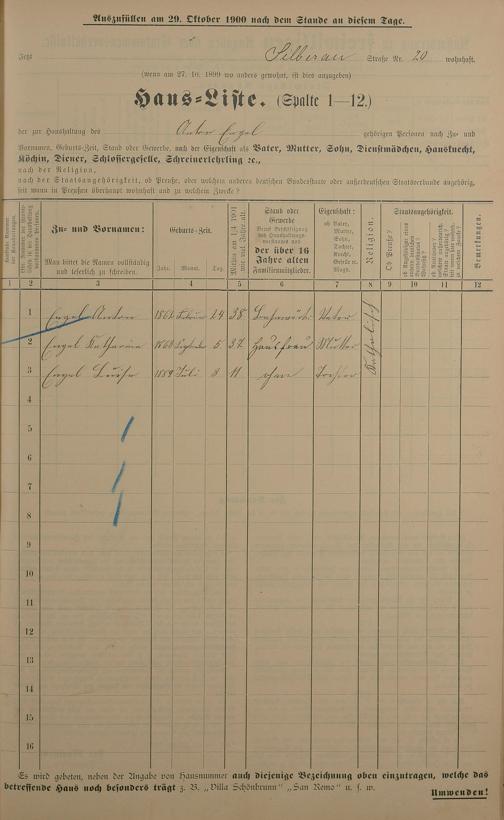 Auszufüllen am 29. Oktober 1900 nach dem Stande an diesem Tage.
Jetzt Silberau Straße Nr. 20 wohnhaft.
(wenn am 27. 10. 1899 wo anders gewohnt, ist dies anzugeben)
Haus=Liste. (Spalte 1—12.)
der zur Haushaltung des Anton Engel gehörigen Personen nach Zu= und
Vornamen, Geburts=Zeit, Stand oder Gewerbe, nach der Eigenschaft als Vater, Mutter, Sohn, Dienstmädchen, Hausknecht,
Köchin, Diener, Schlossergeselle, Schreinerlehrling ꝛc.,
nach der Religion,
nach der Staatsangehörigkeit, ob Preuße, oder welchem anderen deutschen Bundesstaate oder außerdeutschen Staatsverbande angehörig,
seit wann in Preußen überhaupt wohnhaft und zu welchem Zwecke?
Zu= und Vornamen:
Man bittet die Namen vollständig
und leserlich zu schreiben.
Geburts=Zeit.
Jahr. Monat. Tag.
Stand oder
Gewerbe
der über 16
Jahre alten
Familienmitglieder.
Eigenschaft:
ob Vater,
Mutter,
Sohn,
Tochter,
Knecht,
Geselle ꝛc.
Magd.
Religion.
Staatsangehörigkeit.
Ob Preuße?
Bemerkungen.
1 2 3 4 5 6 7 8 9 10 11 12
1 Engel Anton 24 38 Vater
2 Engel Katharina 5 37 Hausfrau Mutter
3 Engel Luise 1889 Juli 8 11 ohne Tochter
Katholisch
4
5
6
7
8
9
10
11
12
13
14
15
16
Es wird gebeten, neben der Angabe von Hausnummer auch diejenige Bezeichnung oben einzutragen, welche das
betreffende Haus noch besonders trägt z. B. „Villa Schönbrunn" „San Remo" u. s. w.
Umwenden!